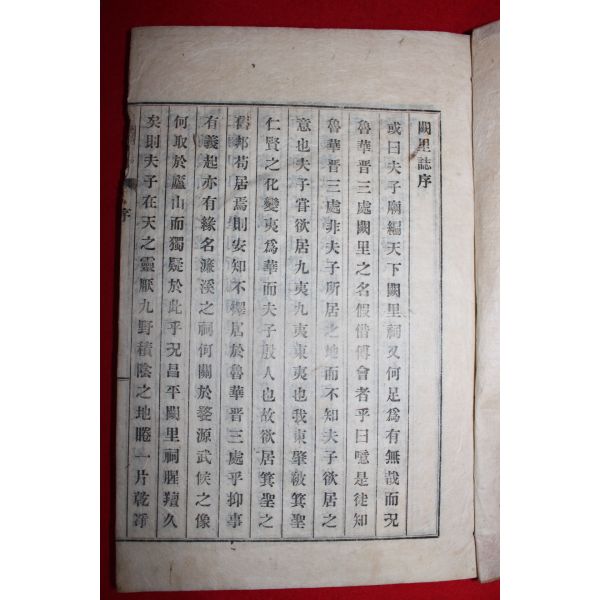 闕里誌序
或曰夫子廟編天下闕里祠又何足爲有無哉而况
魯華晋三處闕里之名假借傅會者乎曰噫是徒知
魯華晋三處非夫子所居之地而不知夫子欲居之
意也夫子甞欲居九夷九夷東夷也我東肇敀箕聖
仁賢之化變夷爲華而夫子殷人也故欲居箕聖之
舊邦苟居焉則安知不擇居於魯華晋三處乎抑事
有義起亦有緣名濂溪之祠何關於婺源武候之像
何取於廬山而獨疑於此乎况昌平闕里祠腥羶久
矣則夫子在天之靈厭九野積陰之地睠一片乾淨
序